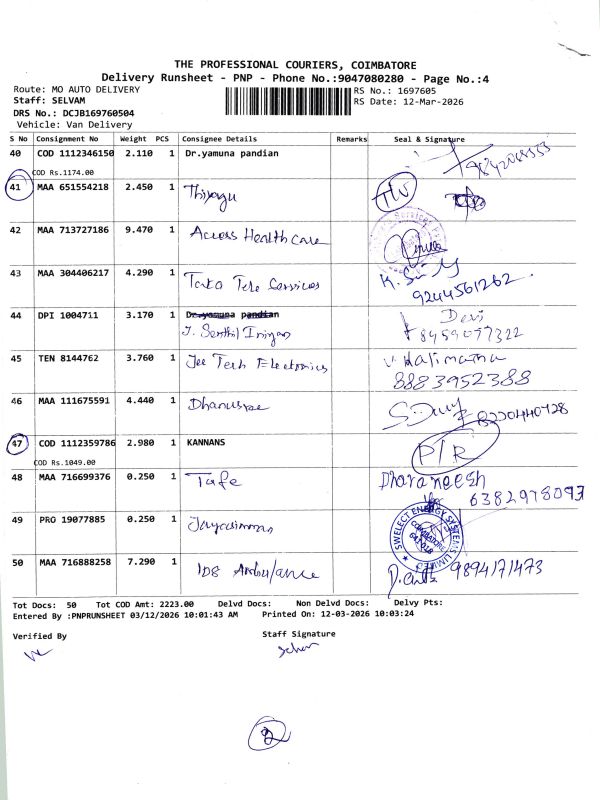 THE PROFESSIONAL COURIERS, COIMBATORE
Delivery Runsheet - PNP - Phone No.:9047080280 - Page No.:4
Route: MO AUTO DELIVERY RS No.: 1697605
Staff: SELVAM RS Date: 12-Mar-2026
DRS No.: DCJB169760504
Vehicle: Van Delivery
S No Consignment No Weight PCS Consignee Details Remarks Seal & Signature
40 COD 1112346150 2.110 1 Dr.yamuna pandian
COD Rs.1174.00
41 MAA 651554218 2.450 1 Thiyagu
42 MAA 713727186 9.470 1 Access Health care
43 MAA 304406217 4.290 1 Tata Tele Services
9244561262
44 DPI 1004711 3.170 1 Dr.yamuna pandian Devi
J. Senthil 8459077322
45 TEN 8144762 3.760 1 Jee Tech Electronics
8883952388
46 MAA 111675591 4.440 1 8220440728
47 COD 1112359786 2.980 1 KANNANS P/R
COD Rs.1049.00
48 MAA 716699376 0.250 1 Tafe Dharaneesh
6382978093
49 PRO 19077885 0.250 1 SWELECT ENERGY SYSTEMS LIMITED
COIMBATORE
50 MAA 716888258 7.290 1 108 Ambulance 9894171473
Tot Docs: 50 Tot COD Amt: 2223.00 Delvd Docs: Non Delvd Docs: Delvy Pts:
Entered By :PNPRUNSHEET 03/12/2026 10:01:43 AM Printed On: 12-03-2026 10:03:24
Verified By Staff Signature
2